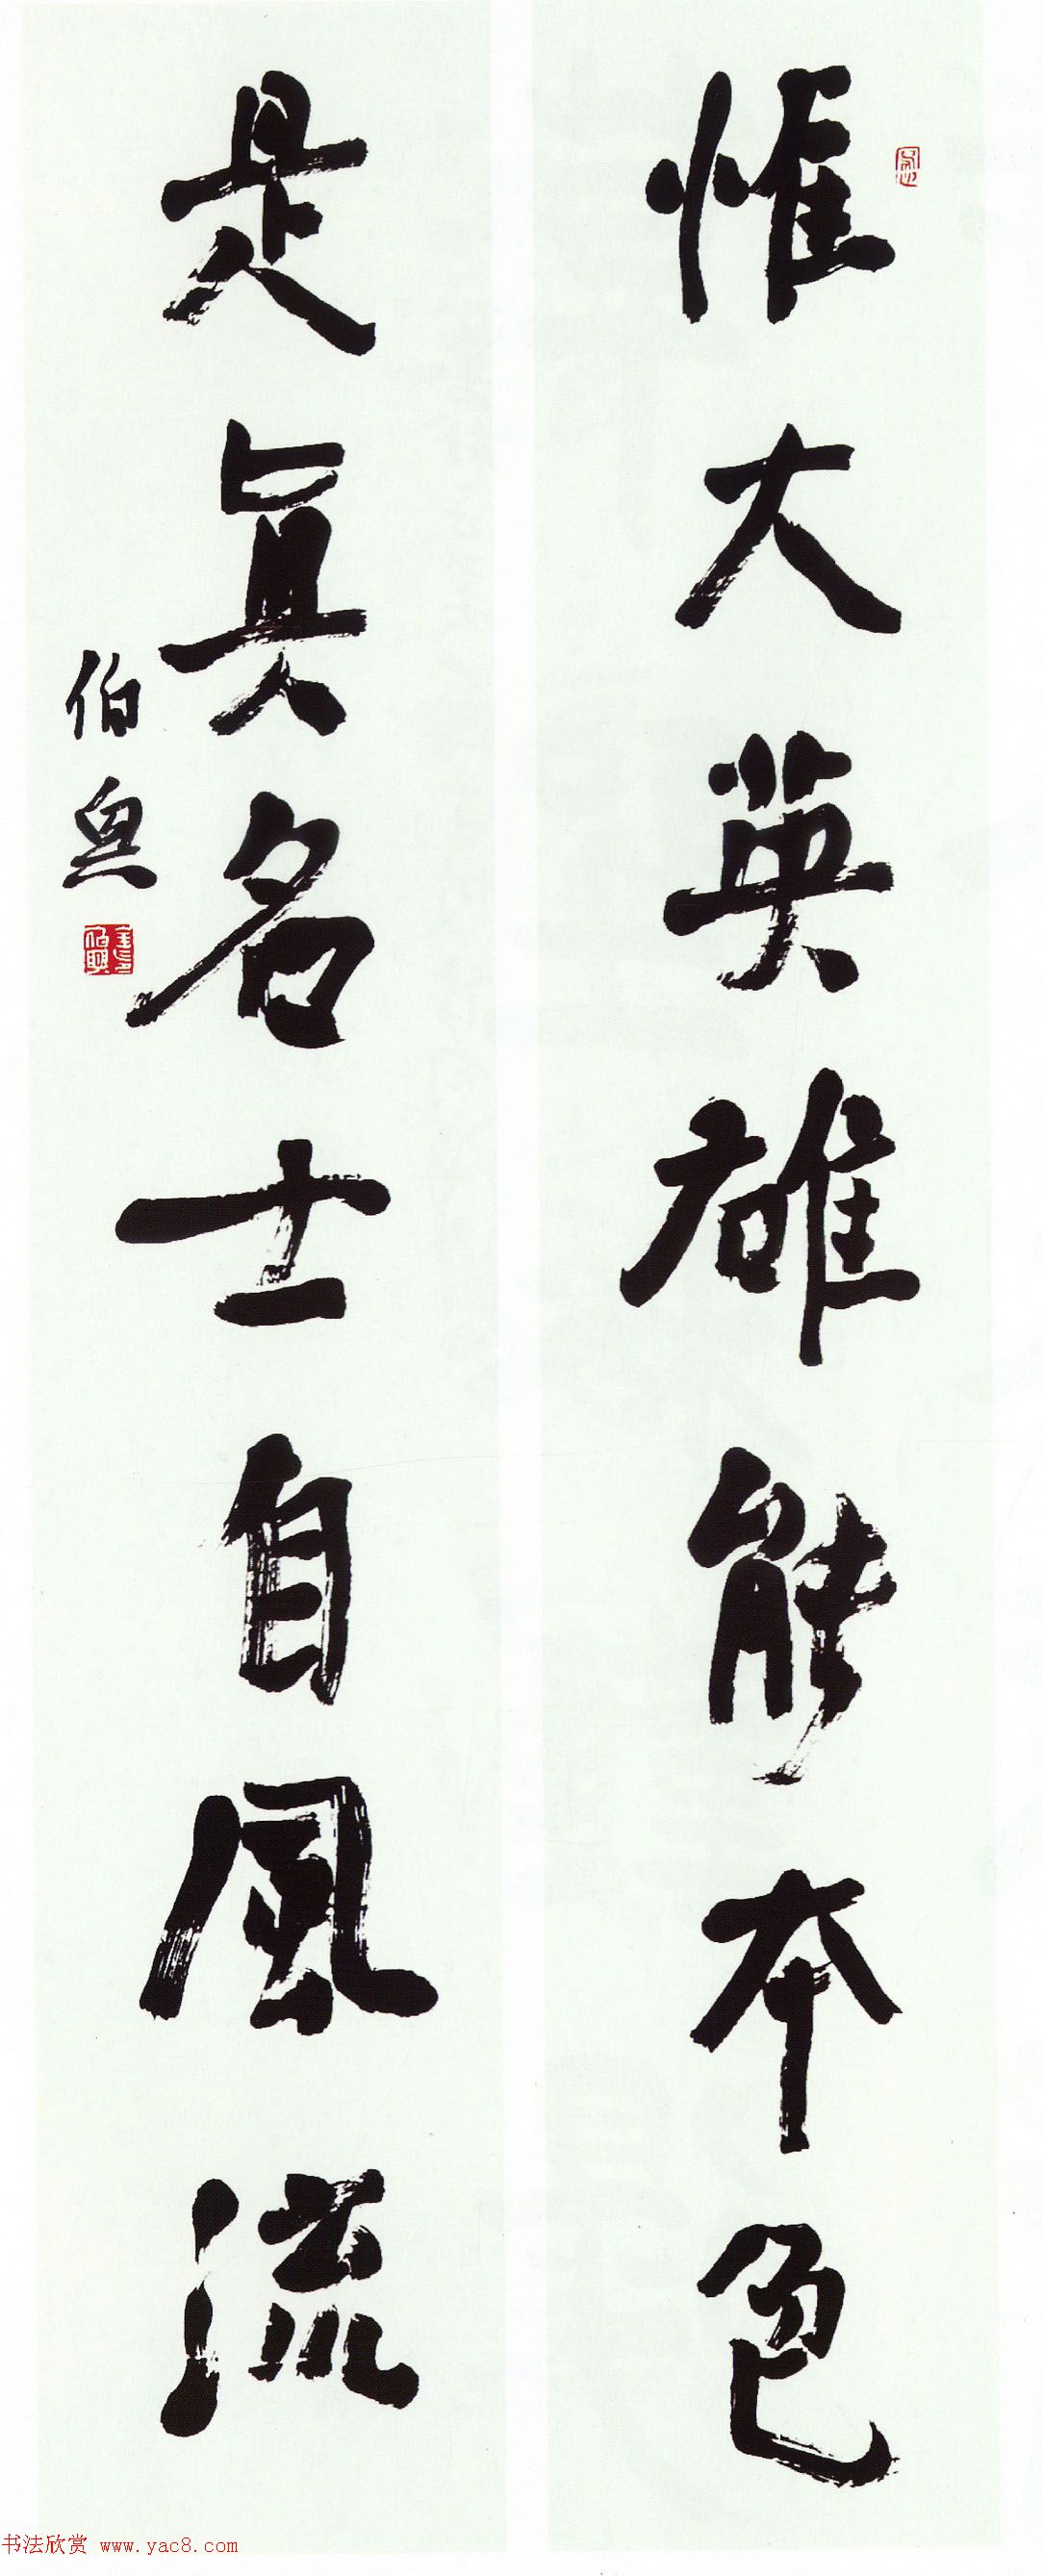 惟大英雄能本色
是真名士自風流
伯興
书法欣赏 www.yac8.com